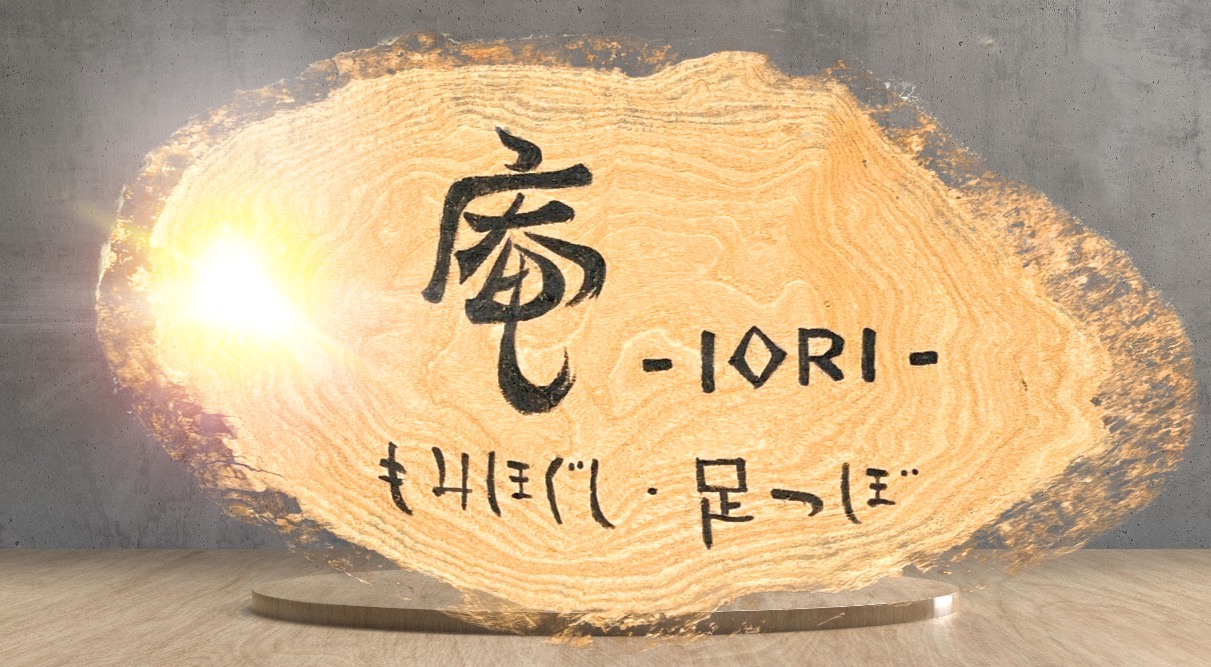 庵
-IORI-
もみほぐし・足つぼ